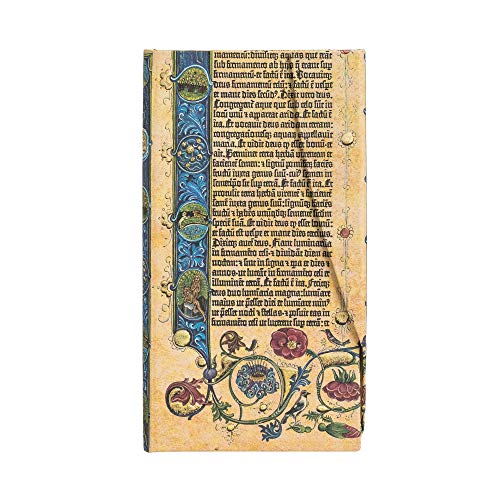 mamentū: divisitq; aquas que erāt
sub firmamento ab hijs q̄ erant sup
firmamentū: et factū ē ita. Vocavitq;
deus firmamentū celū: & factū ē vespe
et mane dies secūdꝰ. Dixit vero deus.
Congregent aque que sub celo sūt in
locū unū & appareat arida. Et factū ē
ita. Et vocavit deus aridam terram:
congregacionesq; aquarū appellavit
maria. Et vidit deus ꝙ esset bonū: et
ait. Germinet terra herbā virentem et
facientē semen: & lignū pomiferū faciēs
fructū iuxta genus suū: cuiꝰ semen in
semetipso sit sup terrā. Et factū ē ita. Et
protulit terra herbā virentē & facientē
semē iuxta genus suū: lignūq; faciēs
fructū & habēs unūqdq; sementē scdm
speciē suā. Et vidit deus ꝙ esset bonū:
et factū est vespe et mane dies tercius.
Dixitq; autē deus. Fiant luminaria
in firmamēto celi: & dividāt diem ac
noctem: & sint in signa & tpa & dies &
annos: ut luceāt in firmamēto celi et
illuminēt terrā. Et factū ē ita. Fecitq;
deus duo lumīaria magna: lumīare
maius ut pesset diei et lumīare minꝰ
ut pesset nocti & stellas: & posuit eas in
firmamēto celi ut lucerent sup terrā: et